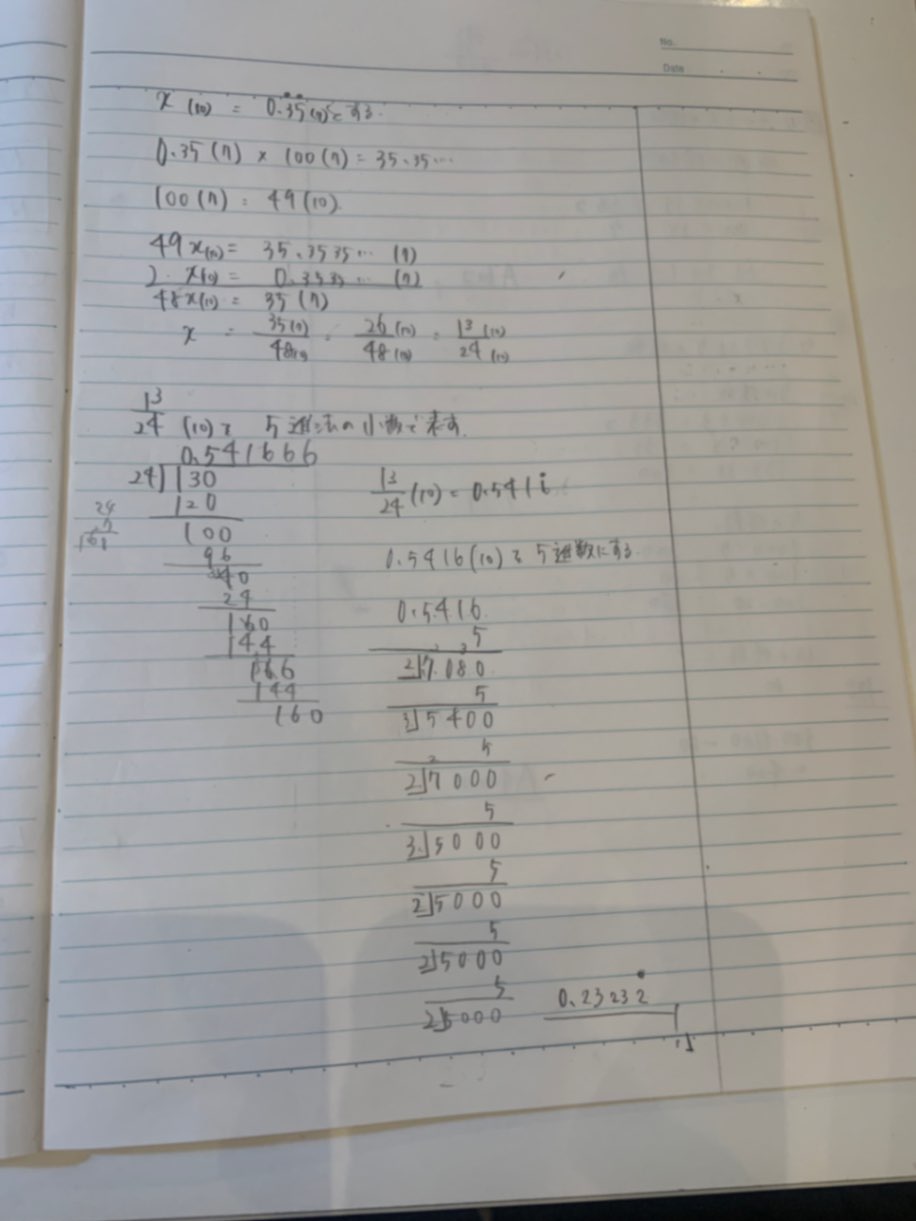 No.
Date
x (10) = 0.3̇5̇(7)とする.
0.35 (7) × 100 (7) = 35.35…
100 (7) = 49 (10).
49x(10) = 35.3535… (7)
). x(10) = 0.3535… (7)
48x(10) = 35 (7)
x = 35(7)/48(10) = 26(10)/48(10) = 13(10)/24(10)
13/24 (10)を 5進法の小数で表す.
0.541666
24)130
120
100
96
40
24
160
144
166
144
160
24
7
168
13/24 (10) = 0.541i
0.5416(10)を5進数にする
0.5416
5
2|7.080
5
3|5400
5
2|7000
5
3.|5000
5
2|5000
5
2|5000
5
2|5000
0.23232̇